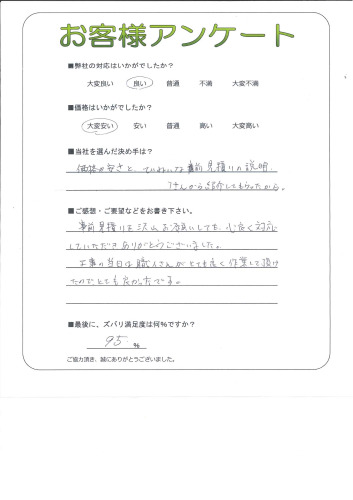 お客様アンケート
■弊社の対応はいかがでしたか？
大変良い 良い 普通 不満 大変不満
■価格はいかがでしたか？
大変安い 安い 普通 高い 大変高い
■当社を選んだ決め手は？
価格の安さと、ていねいな事前見積りの説明
さんから紹介してもらったから。
■ご感想・ご要望などをお書き下さい。
事前見積りを沢山お願いしても、心良く対応
していただきありがとうございました。
工事の当日は職人さんがとても良く作業して頂け
たのでとても良かったです。
■最後に、ズバリ満足度は何%ですか？
95 %
ご協力頂き、誠にありがとうございました。